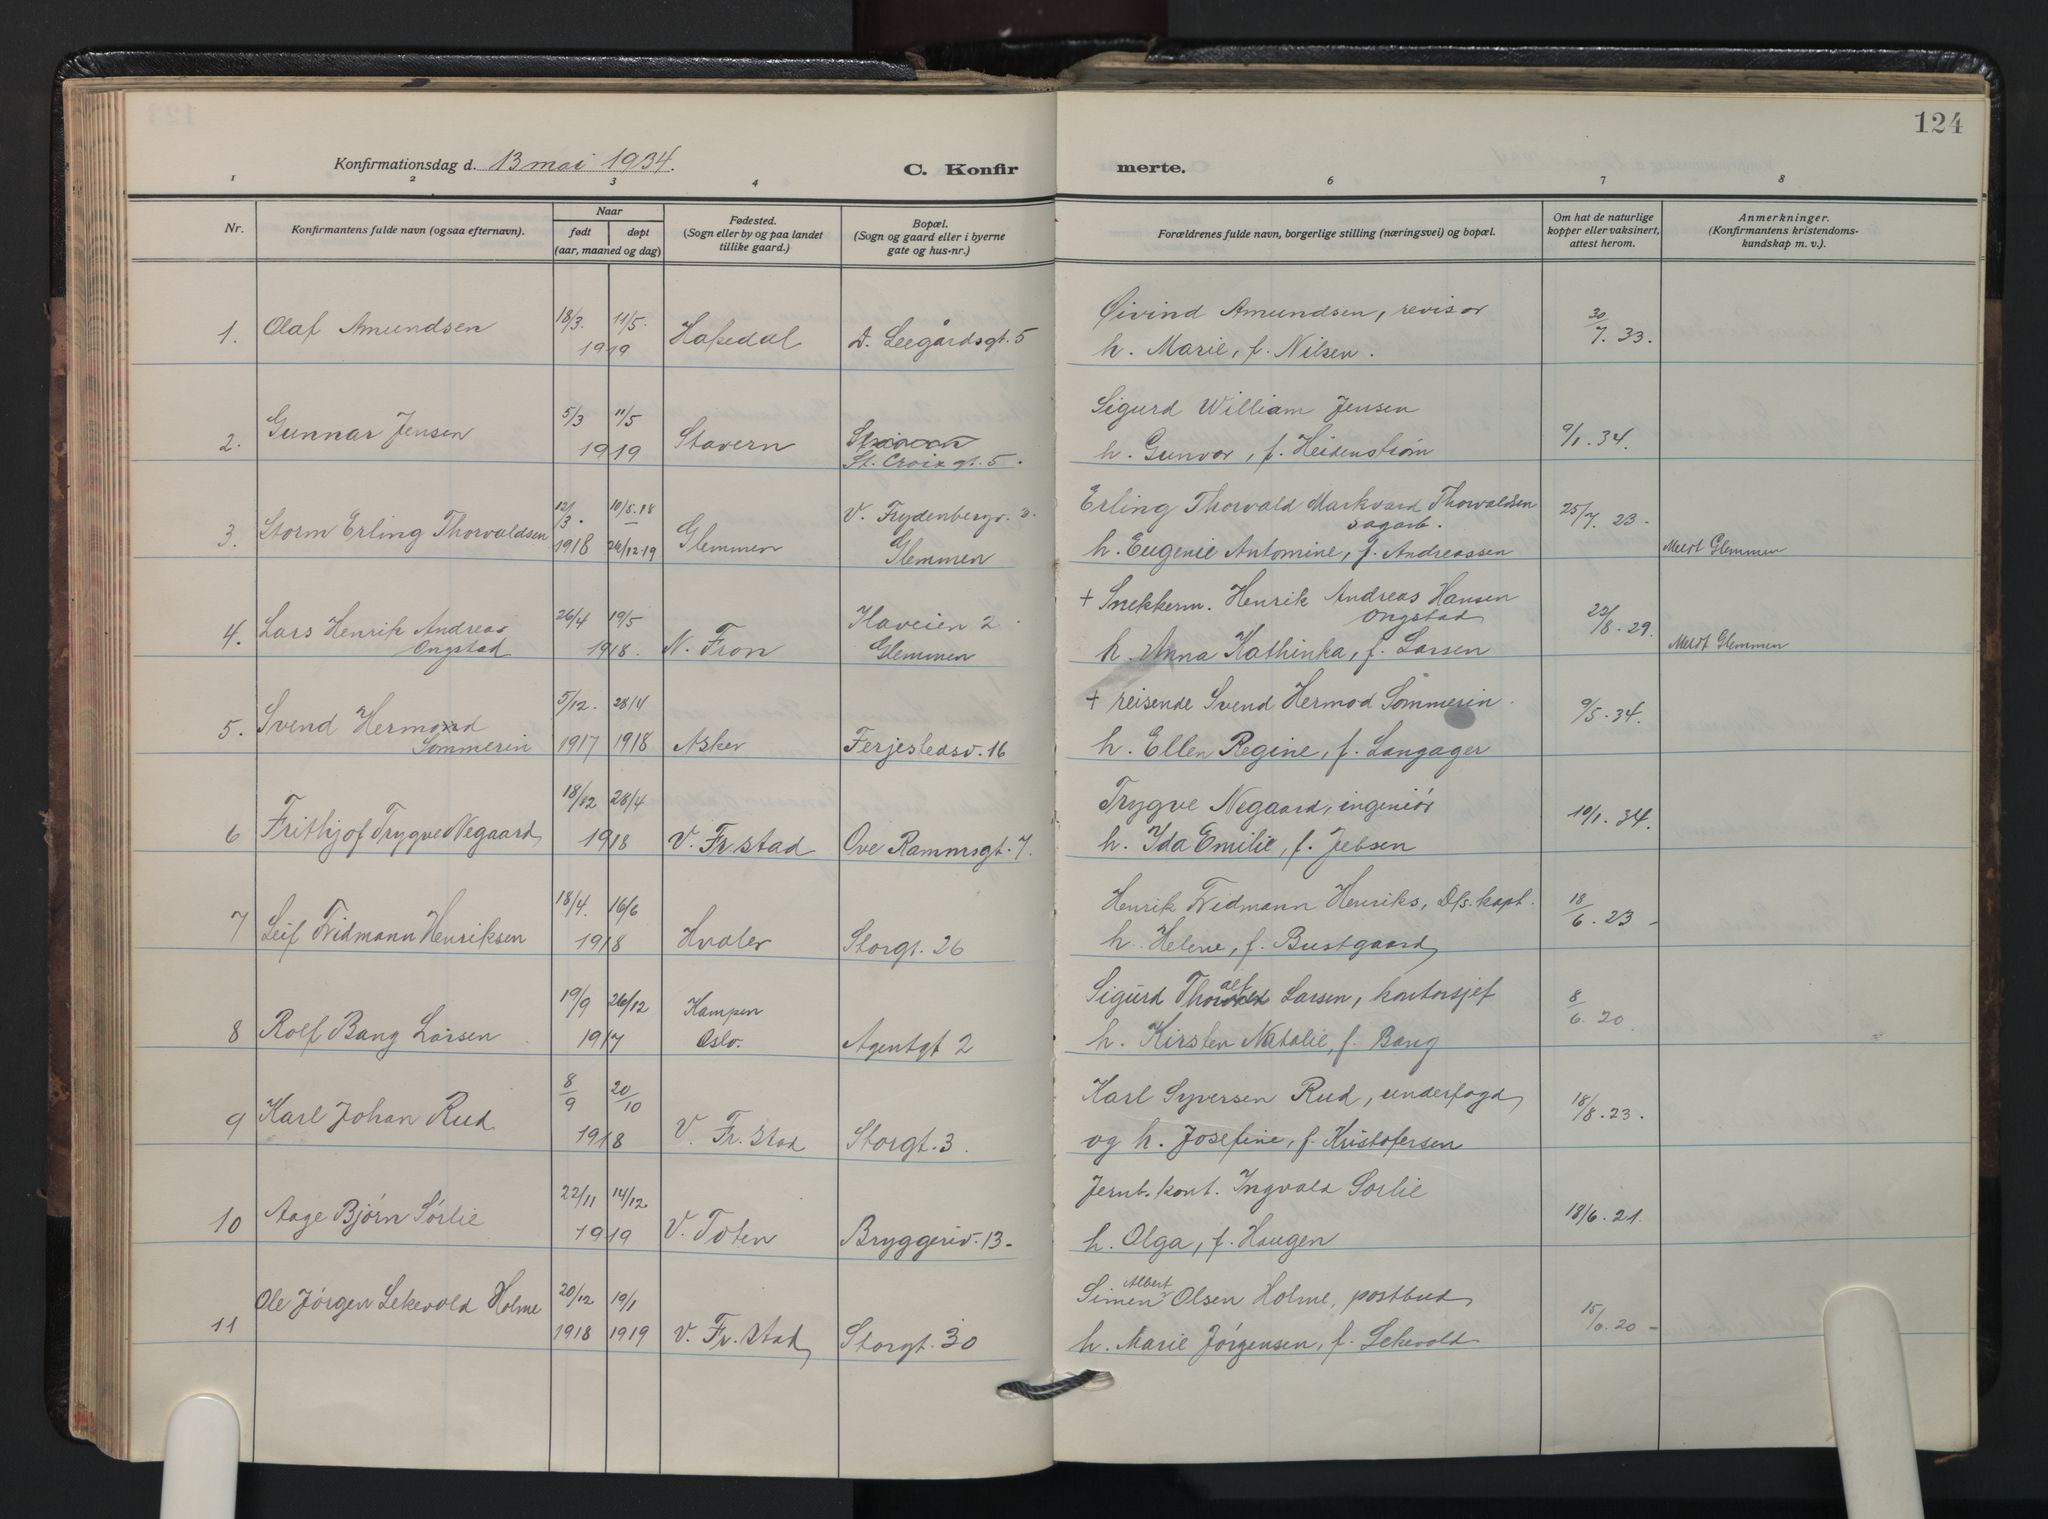 124
Konfirmationsdag d. 13 mai 1934.
C. Konfirmerte.
1 2 3 4 6 7 8
Nr.
Konfirmantens fulde navn (ogsaa efternavn).
Naar
født døpt
(aar, maaned og dag)
Fødested.
(Sogn eller by og paa landet
tillike gaard.)
Bopæl.
(Sogn og gaard eller i byerne
gate og hus-nr.)
Forældrenes fulde navn, borgerlige stilling (næringsvei) og bopæl.
Om hat de naturlige
kopper eller vaksinert,
attest herom.
Anmerkninger.
(Konfirmantens kristendoms-
kundskap m. v.).
18/3. 11/5. Øivind Amundsen, revisor 30/7. 33.
1. Olaf Amundsen 1919 D. Leegårdsgt. 5 h. Marie, f. Nilsen.
5/3 11/5 Sigurd William Jensen
2. Gunnar Jensen 1919 Stavern h. Gunvor, f. Heidenstrøm 9/1. 34.
St. Croix gt. 5.
12/3. 10/5.18 V. Frydenbergv. Erling Thorvald Markvard Thorvaldsen 25/7. 23.
sagarb.
3. Storm Erling Thorvaldsen 1918 26/12.19 Glemmen Glemmen h. Eugenie Antomine, f. Andreassen Meldt Glemmen
26/4 19/5 Haveien 2 + Snekkerm. Henrik Andreas Hansen
Ongstad 23/8. 29.
4. Lars Henrik Andreas
Ongstad 1918. N. Fron Glemmen h. Anna Kathinka, f. Larsen Meldt Glemmen
5/12. 28/4 + reisende Svend Hermod Sommerin. 9/5. 34.
5. Svend Hermod
Sommerin 1917 1918 Asker Ferjestedsv. 16 h. Ellen Regine, f. Langager
18/12 28/4 Trygve Negaard, ingeniør 10/1. 34.
6 Frithjof Trygve Negaard 1918 V. Fr.stad Ove Rammsgt. 7. h. Ida Emilie, f. Jebsen
18/4. 16/6 Henrik Fridmann Henriks, D/s. kapt. 18/6. 23
7 Leif Fridmann Henriksen 1918 Hvaler Storgt. 26 h. Helene, f. Bustgaard
19/9 26/12 Kampen Sigurd Larsen, kontorsjef 8/6. 20
8 Rolf Bang Larsen 1917 Oslo. Agentgt 2 h. Kirsten Natalie, f. Bang
8/9 20/10 Karl Syversen Rud, underfogd 18/8. 23.
9 Karl Johan Rud 1918 V. Fr. stad Storgt. 3. og h. Josefine, f. Kristofersen
22/11 14/12 Jernb. kont. Ingvald Sørlie 18/6. 21.
10 Aage Bjørn Sørlie 1919 V. Toten Bryggeriv. 13- h. Olga, f. Haugen
Ole Jørgen Lekevold Holme 20/12 19/1 Simen Albert Olsen Holme, postbud
11 1918 1919 V. Fr. stad Storgt. 30 h. Marie Jørgensen, f. Lekevold